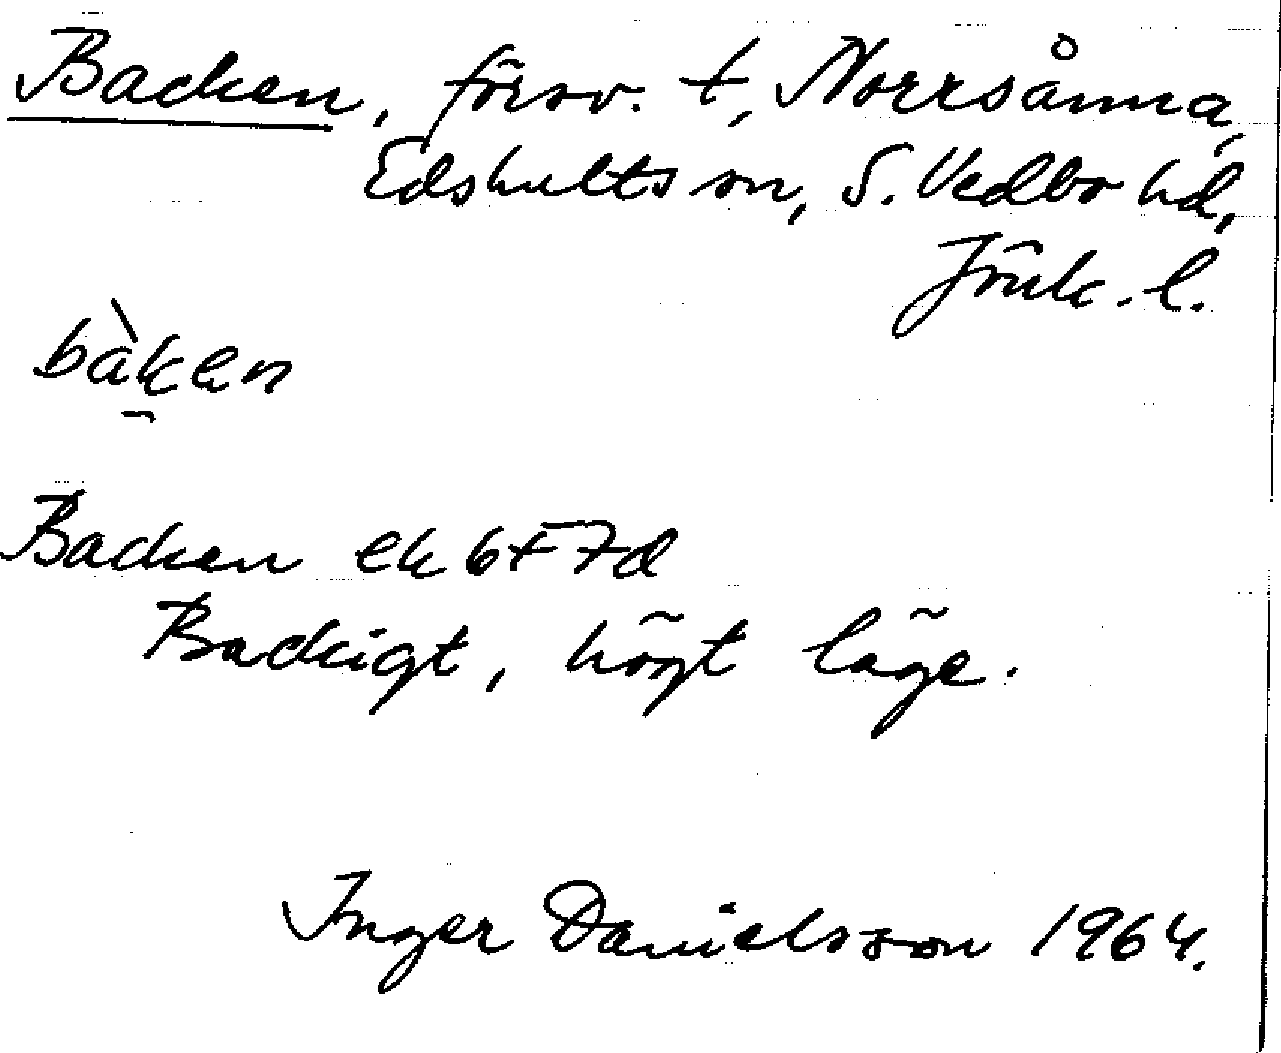 Backen, försv. t, Norrsånna,
Edshults sn, S. Vedbo hd,
Jönk. l.
bàken
Backen ek 6F7d
Backigt, högt läge.
Inger Danielsson 1964.